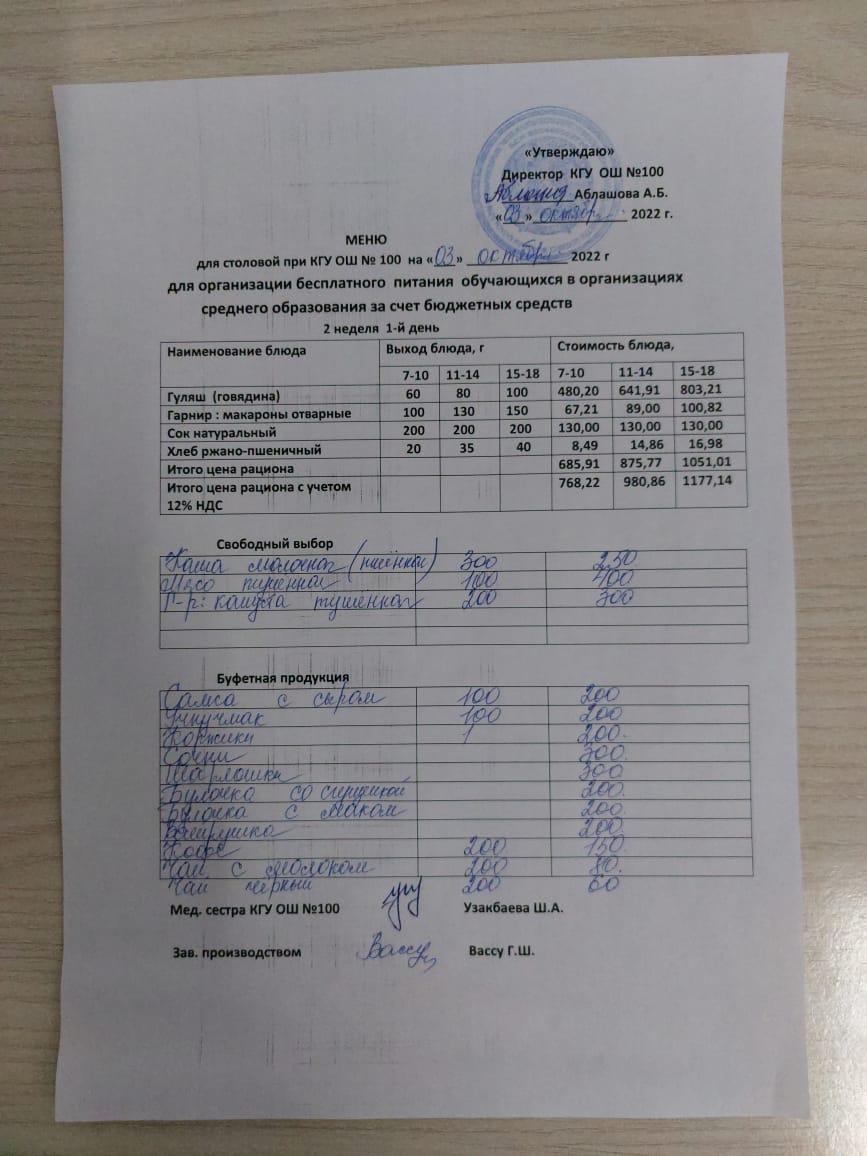 «Утверждаю»
Директор КГУ ОШ №100
Аблашова А.Б.
«03» октября 2022 г.
МЕНЮ
для столовой при КГУ ОШ № 100 на «03» октября 2022 г
для организации бесплатного питания обучающихся в организациях
среднего образования за счет бюджетных средств
2 неделя 1-й день
Наименование блюда Выход блюда, г Стоимость блюда,
7-10 11-14 15-18 7-10 11-14 15-18
Гуляш (говядина) 60 80 100 480,20 641,91 803,21
Гарнир : макароны отварные 100 130 150 67,21 89,00 100,82
Сок натуральный 200 200 200 130,00 130,00 130,00
Хлеб ржано-пшеничный 20 35 40 8,49 14,86 16,98
Итого цена рациона 685,91 875,77 1051,01
Итого цена рациона с учетом 768,22 980,86 1177,14
12% НДС
Свободный выбор
Каша молочная (пшённая) 300 250
Мясо тушенная 100 400
Г-р: капуста тушенная 200 300
Буфетная продукция
Самса с сыром 100 200
Учпучмак 100 200
Коржики 1 200
Сочни 300
Шарлошка 300
Булочка со сгущенкой 200
Булочка с маком 200
Ватрушка 200
Кофе 200 150
Чай с молоком 200 80
Чай черный 200 60
Мед. сестра КГУ ОШ №100 Узакбаева Ш.А.
Зав. производством Вассу Вассу Г.Ш.